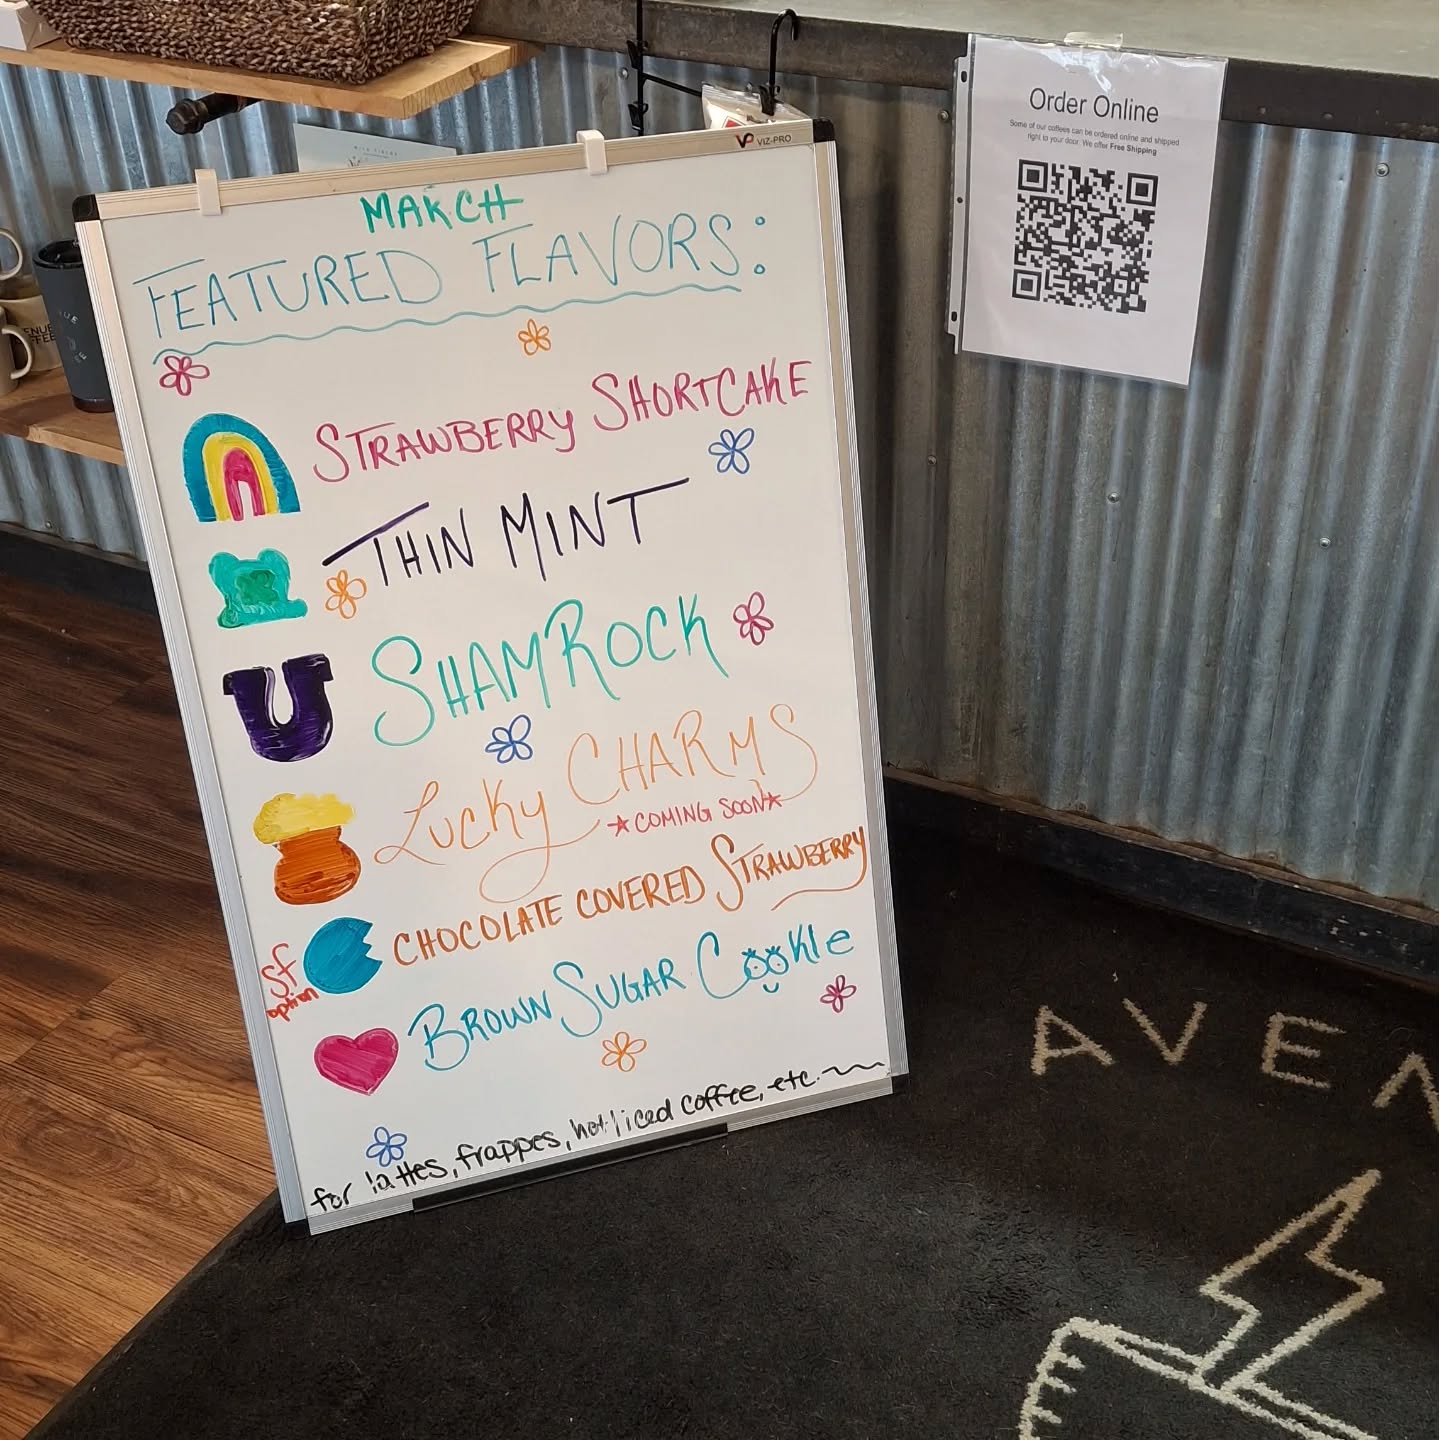 VIZ-PRO
MARCH
FEATURED FLAVORS:
STRAWBERRY SHORTCAKE
THIN MINT
SHAMROCK
LUCKY CHARMS
★COMING SOON★
CHOCOLATE COVERED STRAWBERRY
SF
option
BROWN SUGAR COOKIE
for lattes, frappes, hot/iced coffee, etc.
Order Online
Some of our coffees can be ordered online and shipped
right to your door. We offer Free Shipping
AVEN